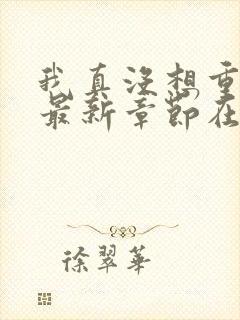 我真没想重
最新章节在
徐翠华